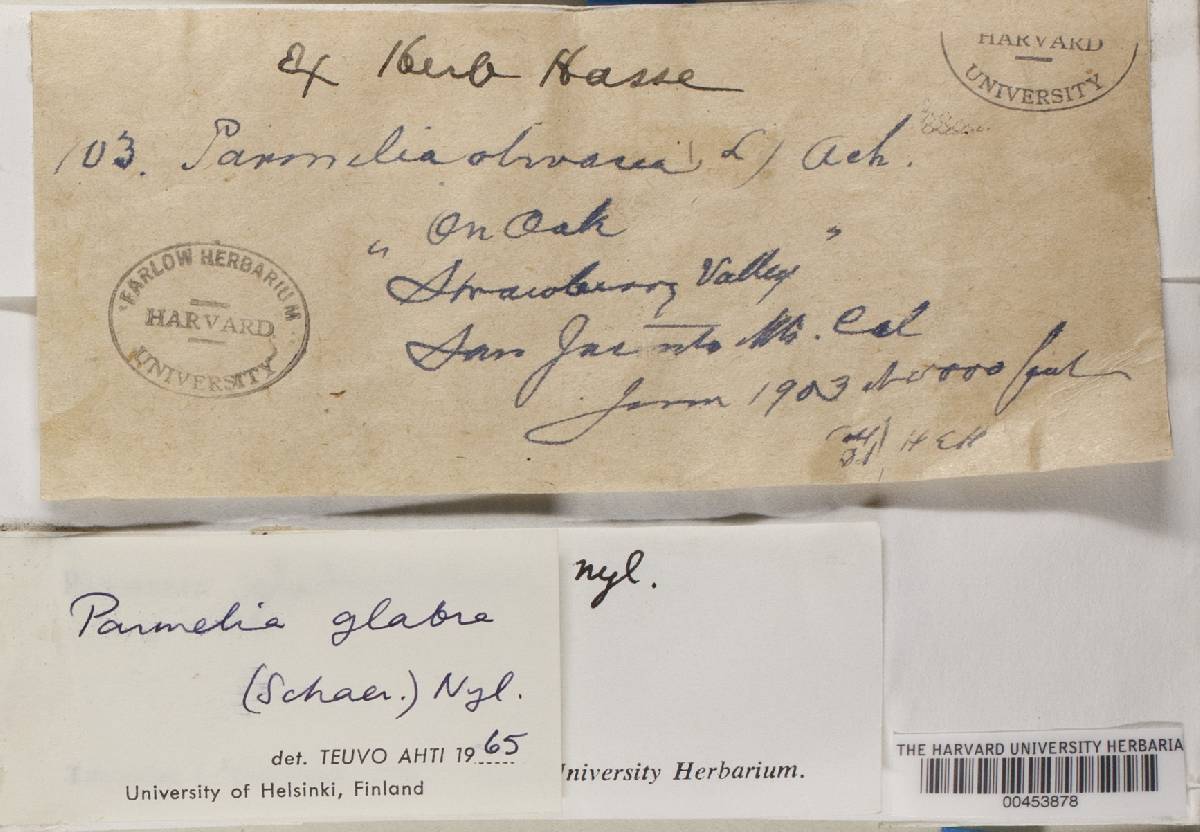 HARVARD
UNIVERSITY
Ex Herb Hasse
103. Parmelia olivacea (L) Ach.
"On Oak"
Strawberry Valley
San Jacinto Mts. Cal
1903
FARLOW HERBARIUM
HARVARD
UNIVERSITY
nyl.
Parmelia glabra
(Schaer.) Nyl.
det. TEUVO AHTI 1965
University of Helsinki, Finland
University Herbarium.
THE HARVARD UNIVERSITY HERBARIA
00453878